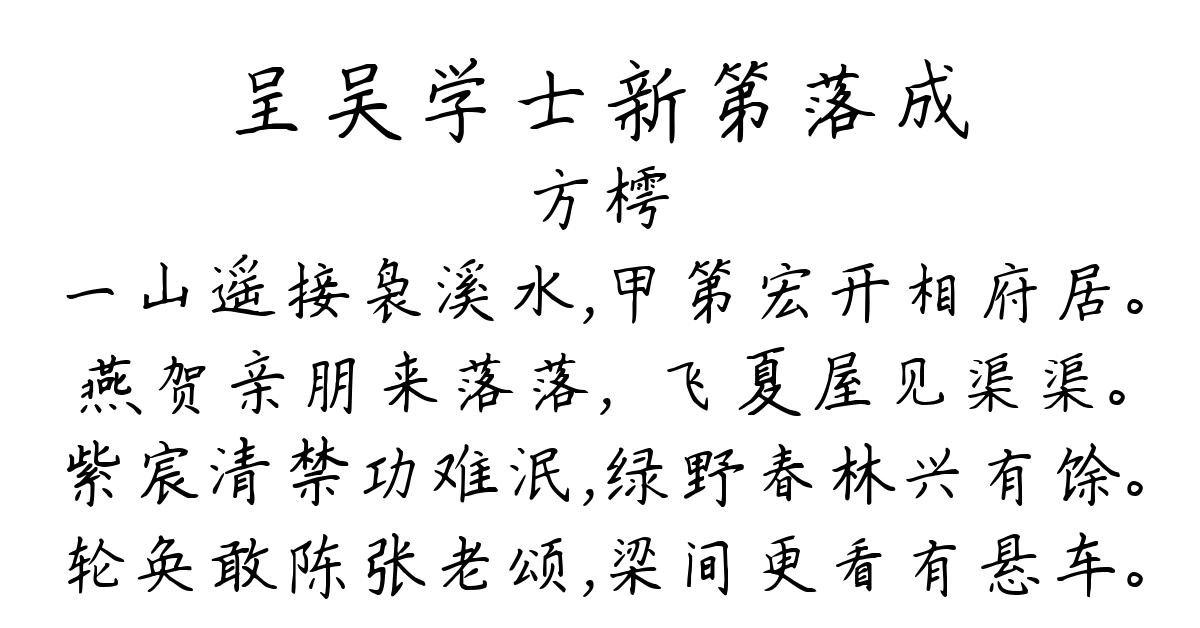 呈吴学士新第落成
方樗
一山遥接袅溪水,甲第宏开相府居。
燕贺亲朋来落落，飞夏屋见渠渠。
紫宸清禁功难泯,绿野春林兴有馀。
轮奂敢陈张老颂,梁间更看有悬车。